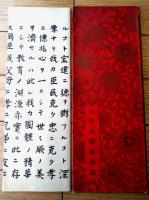 ルコト宏遠ニ德ヲ樹ツルコト深
厚ナリ我カ臣民克ク忠ニ克ク孝
ニ億兆心ヲ一ニシテ世々厥ノ美
ヲ濟セルハ此レ我カ國體ノ精華
ニシテ教育ノ淵源亦實ニ此ニ存
ス爾臣民父母ニ孝ニ兄弟ニ友ニ